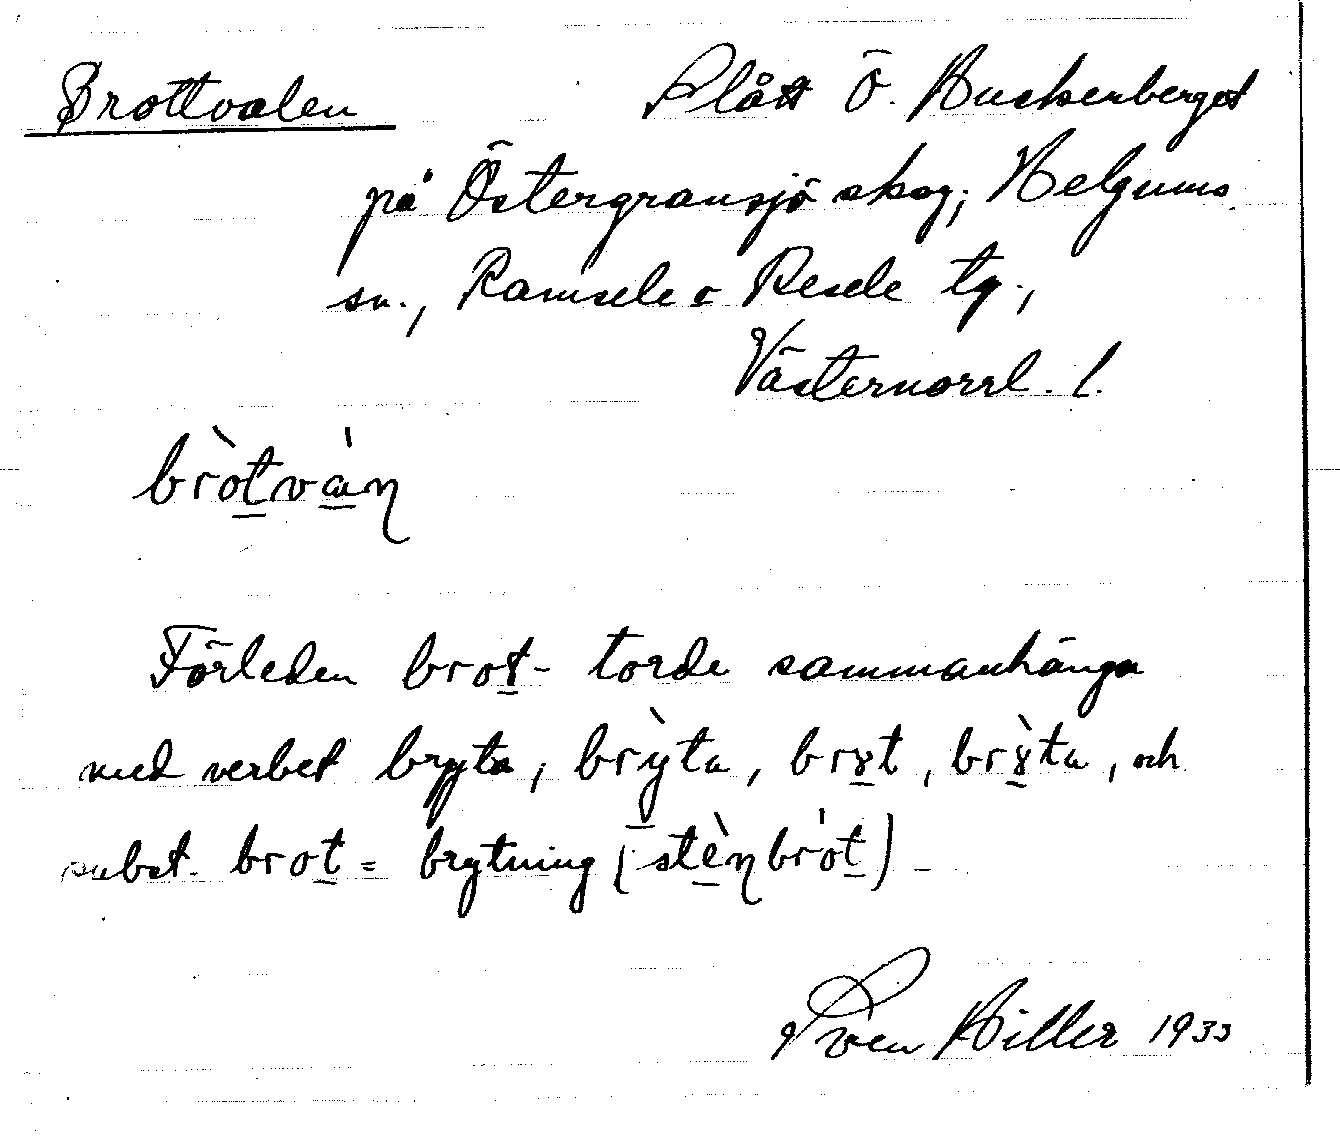 Brottvalen Slått Ö. Buckerberget
på Östergransjö skog; Helgums
sn., Ramsele o Resele tg.,
Västernorrl. l.
bròtvàn
Förleden brot- torde sammanhänga
med verbet bryta, brỳta, brɤt, brɤ̀ta, och
subst. brot = brytning (stènbrot)
Sven Hiller 1933